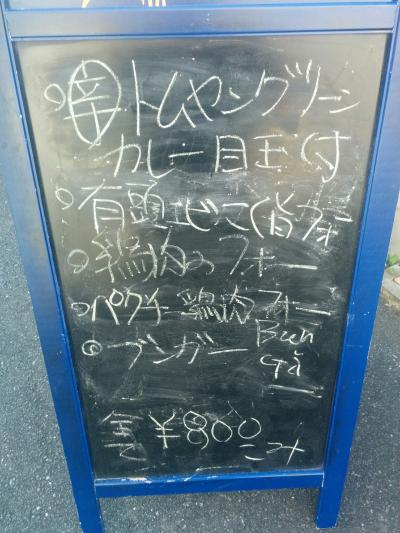 ○辛トムヤングリーン
カレー目玉付
○有頭エビつくねフォー
○鶏肉のフォー
○パクチー鶏肉フォー
◎ブンガー Bún
Gà
全¥800